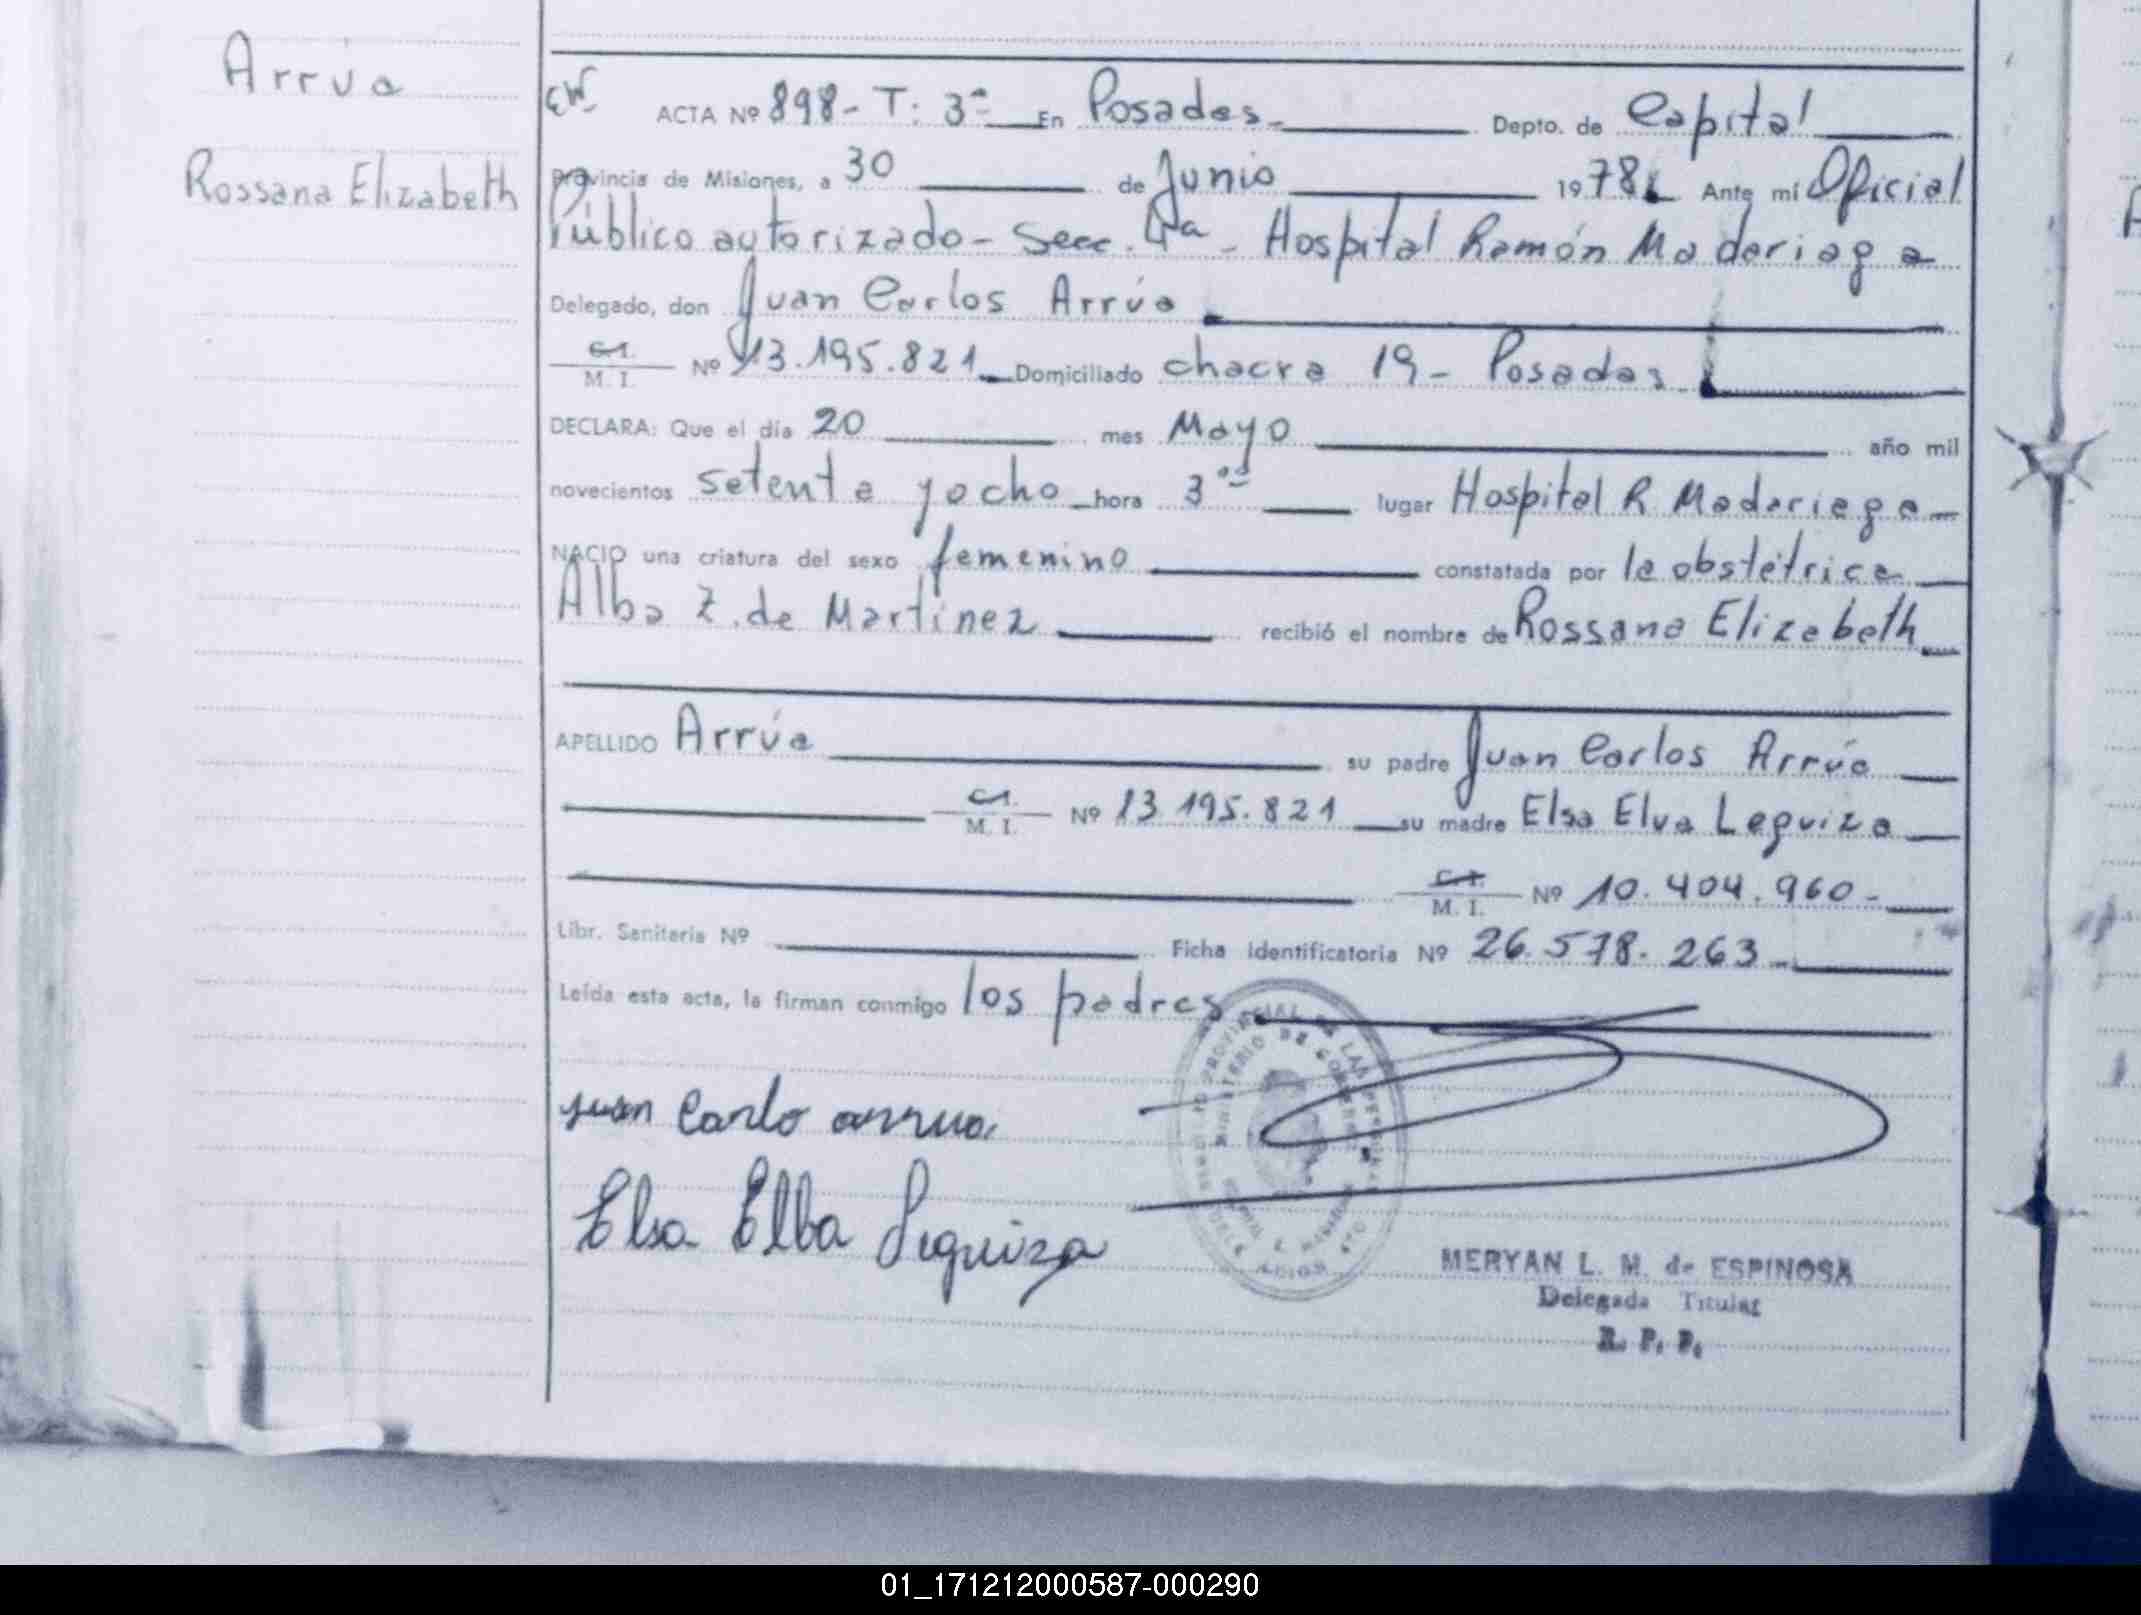 Arrua
Rossana Elizabeth
ACTA Nº 898- T: 3ª En Posadas Depto. de Capital
Provincia de Misiones, a 30 de Junio 1978 Ante mí Oficial
Público autorizado - Secc. 4ª - Hospital Ramón Madariaga
Delegado, don Juan Carlos Arrúa
C.I.
M. I. Nº 13.195.821 Domiciliado chacra 19 - Posadas
DECLARA: Que el día 20 mes Mayo año mil
novecientos setenta y ocho hora 3 lugar Hospital R Madariaga
NACIO una criatura del sexo femenino constatada por la obstétrica
Alba Z. de Martínez recibió el nombre de Rossana Elizabeth
APELLIDO Arrúa su padre Juan Carlos Arrúa
C.I.
M. I. Nº 13 195.821 su madre Elsa Elva Leguiza
C.I.
M. I. Nº 10.404.960-
Libr. Sanitaria Nº Ficha Identificatoria Nº 26.578.263
Leída esta acta, la firman conmigo los padres
juan Carlo arrua.
Elsa Elba Leguiza
MERYAN L. M. de ESPINOSA
Delegada Titular
R. P. P.
01_171212000587-000290